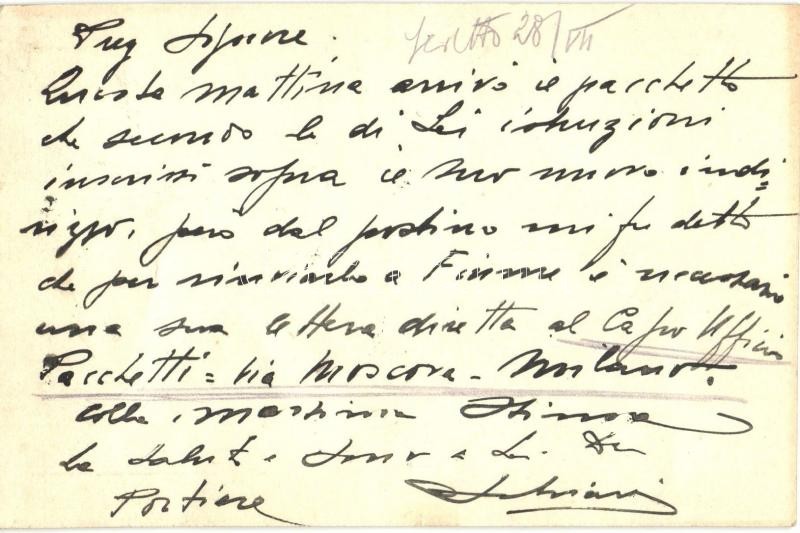 Preg Signore.
scritto 28/VII
Questa mattina arrivò il pacchetto
che secondo le di Lei istruzioni
inscrissi sopra il suo nuovo indi=
rizzo, però dal postino mi fu detto
che per rinviarlo a Fiume è necessario
una sua lettera diretta al Capo Ufficio
Pacchetti = Via Moscova - Milano.
Colla massima Stima
La saluto e sono a Lei
Portiere